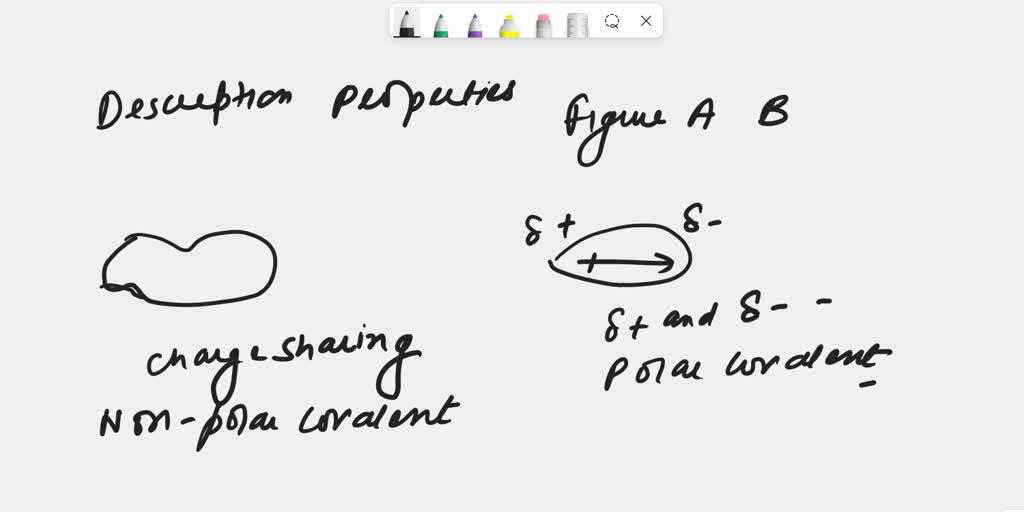 Description properties
Figure A B
δ+ δ-
charge sharing
Non-polar covalent
δ+ and δ- -
polar covalent